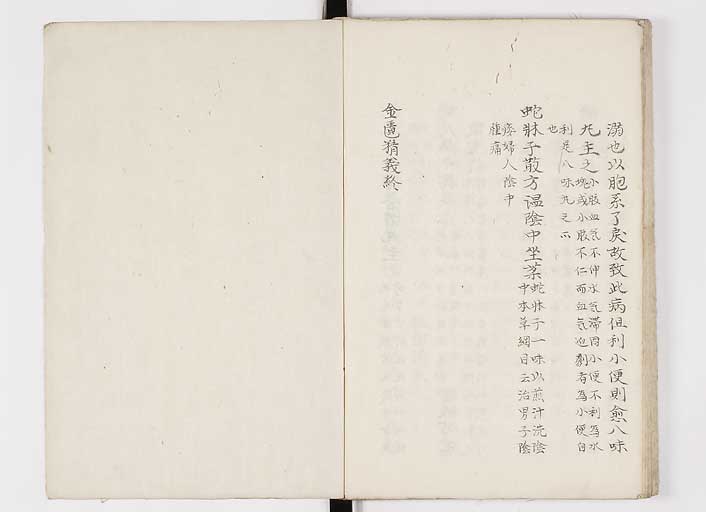 溺也以胞系了戾故致此病但利小便則愈八味
丸主之小腹血気不仲水気滞固小便不利為水
塊或小腹不仁而血気也劇者為小便自
利是八味丸之所
也
蛇牀子散方温陰中坐薬蛇牀子一味以煎汁洗陰
中本草綱目云治男子陰
痿婦人陰中
腫痛
金匱精義終